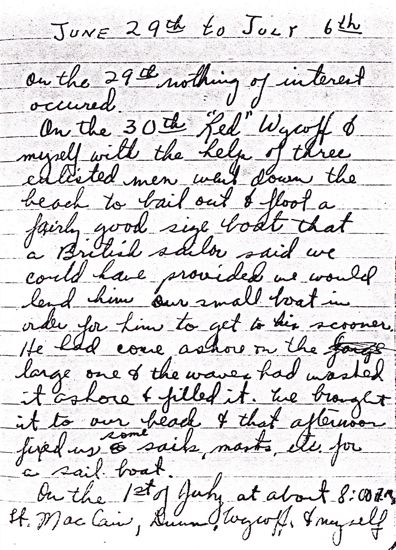 JUNE 29th to JULY 6th
On the 29th nothing of interest
occured.
On the 30th "Red" Wycoff &
myself with the help of three
enlisted men went down the
beach to bail out & float a
fairly good size boat that
a British sailor said we
could have provided we would
lend him our small boat in
order for him to get to his scooner.
He had come ashore on the
large one & the waves had washed
it ashore & filled it. We brought
it to our beach & that afternoon
fixed up some sails, masts, etc. for
a sail boat.
On the 1st of July at about 8:00
Lt. MacCain, Dunn, Wycoff, & myself